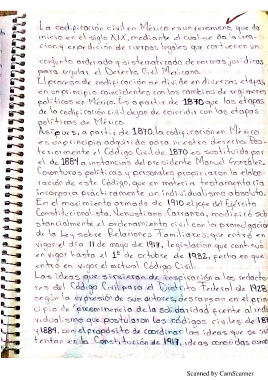 La codificación civil en México es un fenómeno, que da
inicio en el siglo XIX, mediante el cual se da la crea-
ción y expedición de cuerpos legales que contienen un
conjunto ordenado y sistematizado de normas jurídicas
para regular el Derecho Civil Mexicano.
El proceso de codificación se divide en diversas etapas
en un principio coincidentes con los cambios de regímenes
políticos en México. Es a partir de 1870 que las etapas
de la codificación civil dejan de coincidir con las etapas
políticas de México.
Así pues, a partir de 1870, la codificación en México
es un principio adquirido para nuestro derecho. Pos-
teriormente el Código Civil de 1870 es sustituido por
el de 1884 a instancias del presidente Manuel González.
Coyunturas políticas y personales propiciaron la elabo-
ración de este Código, que en materia testamentaria
incorpora prácticamente un individualismo absoluto.
En el movimiento armado de 1910 el jefe del Ejército
Constitucionalista, Venustiano Carranza, modificó sub
stancialmente el ordenamiento civil con la promulgación
de la Ley sobre Relaciones Familiares, que entró en
vigor el día 11 de mayo de 1917, legislación que continuó
en vigor hasta el 1º de octubre de 1932, fecha en que
entró en vigor el actual Código Civil.
Las ideas que sirvieron de inspiración a los redacto-
res del Código Civil para el Distrito Federal de 1928
según la expresión de sus autores, descansan en el prin
cipio de preeminencia de la solidaridad frente al indi
vidualismo que postularon los códigos civiles de 18
y 1884, con el propósito de coordinar las ideas que se sus
tentan en la Constitución de 1917, ideas conocidas como
Scanned by CamScanner